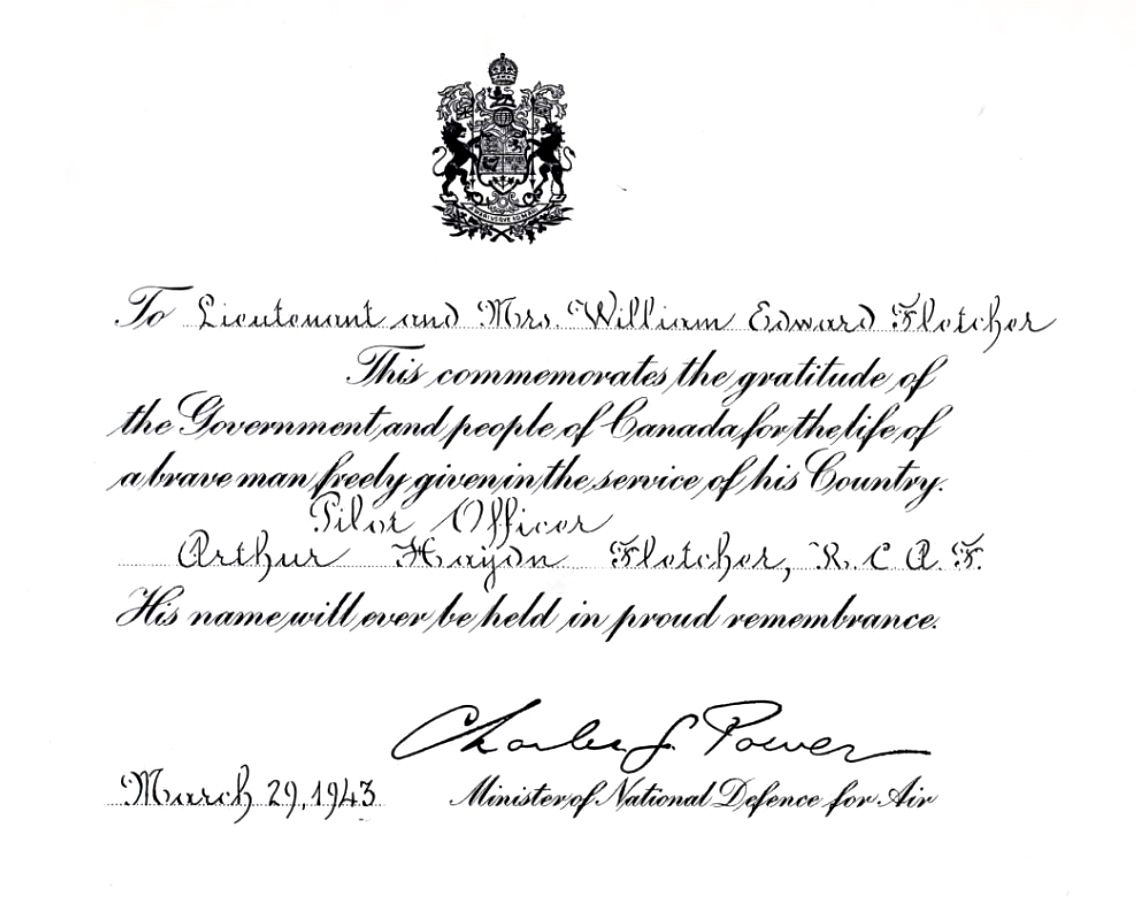 To Lieutenant and Mrs. William Edward Fletcher
This commemorates the gratitude of
the Government and people of Canada for the life of
a brave man freely given in the service of his Country.
Pilot Officer
Arthur Haydn Fletcher, R. C. A. F.
His name will ever be held in proud remembrance.
Charles G. Power
March 29, 1943 Minister of National Defence for Air